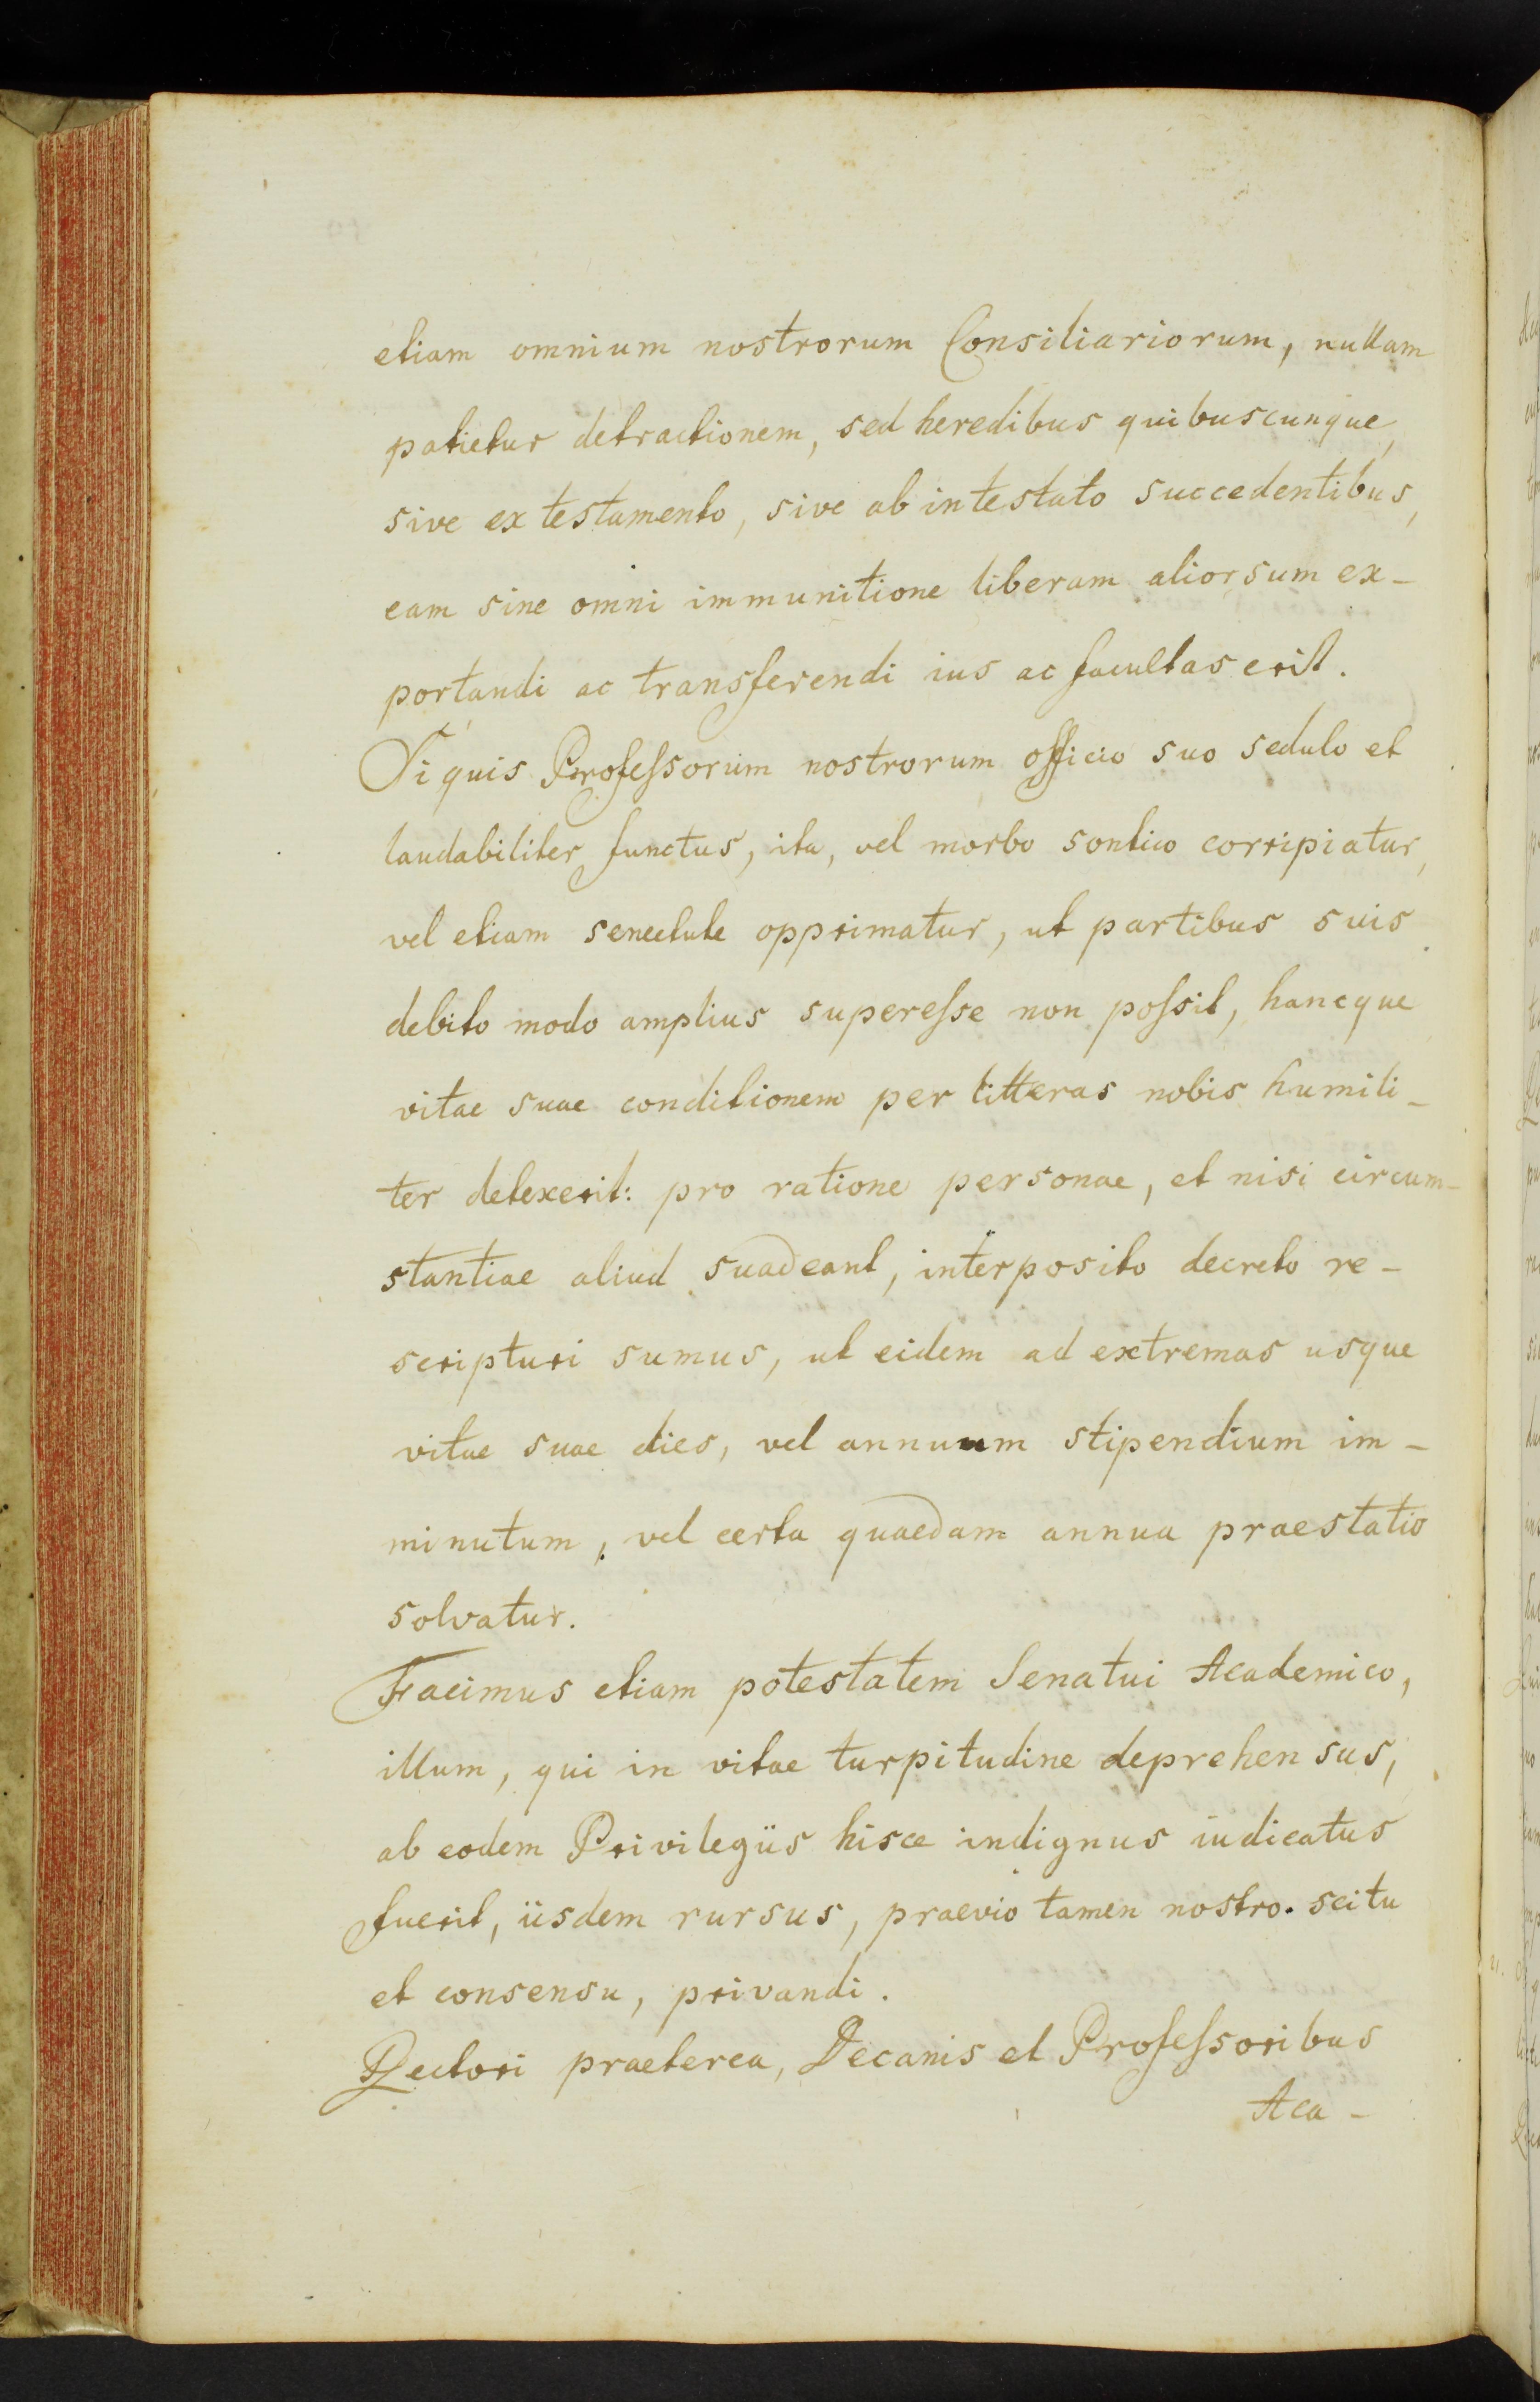 etiam omnium nostrorum Consiliariorum, nullam
patietur detractionem, sed heredibus quibuscunque,
sive ex testamento, sive ab intestato succedentibus,
eam sine omni immunitione liberam aliorsum ex-
portandi ac transferendi ius ac facultas erit.
Si quis Profeſsorum nostrorum officio suo sedulo et
laudabiliter functus, ita, vel morbo sontico corripiatur,
vel etiam senectute opprimatur, ut partibus suis
debito modo amplius supereſse non poſsit, hancque
vitae suae conditionem per litteras nobis humili-
ter detexerit: pro ratione personae, et nisi circum-
stantiae aliud suadeant, interposito decreto re-
scripturi sumus, ut eidem ad extremas usque
vitae suae dies, vel annuum stipendium im-
minutum, vel certa quaedam annua praestatio
solvatur.
Facimus etiam potestatem Senatui Academico,
illum, qui in vitae turpitudine deprehensus,
ab eodem Privilegiis hisce indignus iudicatus
fuerit, iisdem rursus, praevio tamen nostro scitu
et consensu, privandi.
Rectori praeterea, Decanis et Profeſsoribus
Aca-